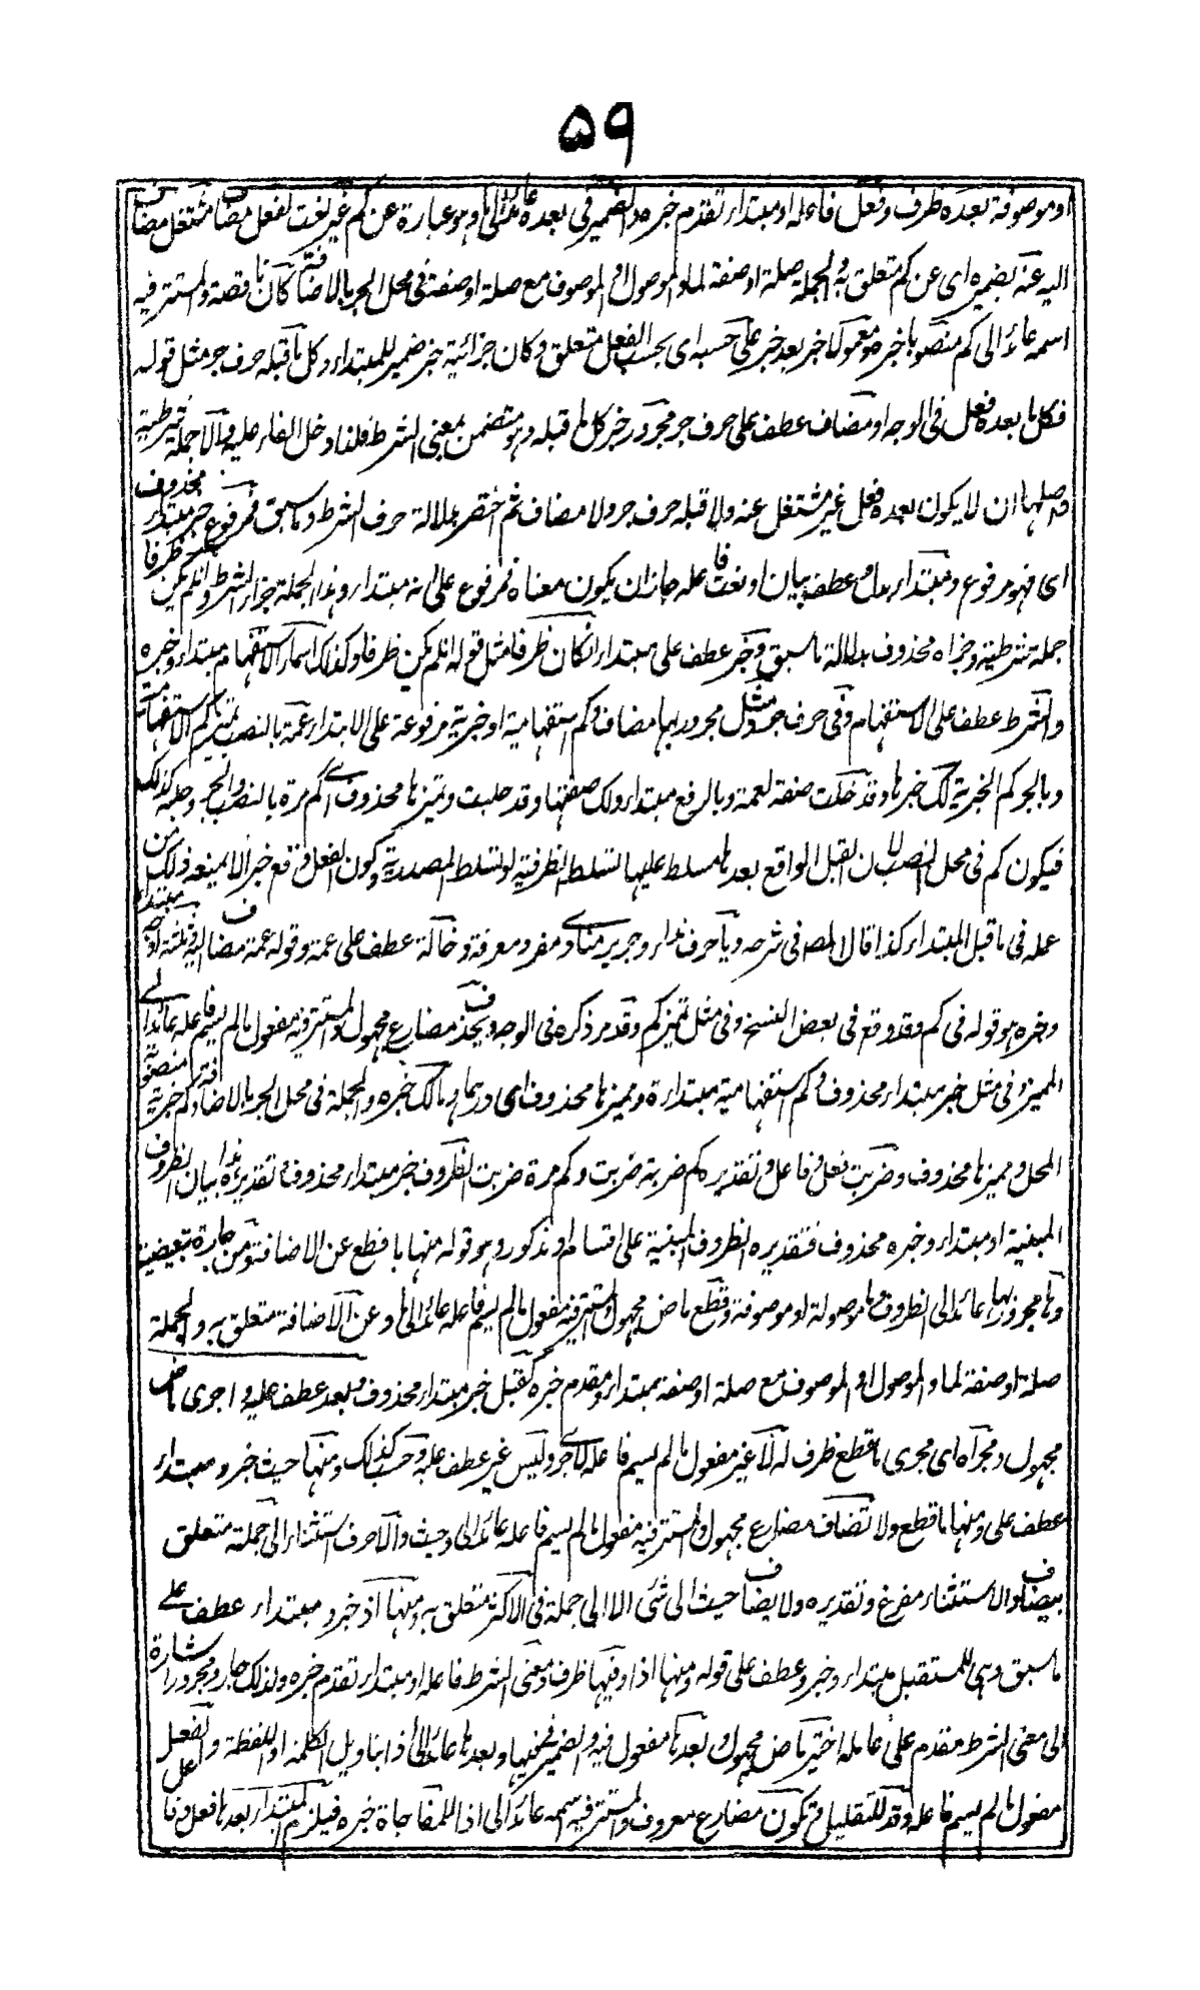 ٥٩
او موصوفة بعده ظرف وفعل فاعله او مبتدا تقدم خبره والضمير فى بعده عائد الى ما وهو عبارة عن كم غير نعت لفعل مضاف مشتغل مضاف
اليه عنه بضميره اى عن كم متعلق به والجملة صلة او صفة لما والموصول او الموصوف مع صلة او صفة فى محل الجر بالاضافة كان ناقصة والمستتر فيه
اسمه عائد الى كم منصوبا خبره معمولا خبر بعد خبر على حسبه اى بحسب الفعل متعلق وكان جزائية خبر ضمير للمبتدا وكل ما قبله حرف جر مثل قوله
فكل ما بعده فعل فى الوجه او مضاف عطف على حرف جر مجرور خبر كل ما قبله وهو متضمن بمعنى الشرط فلذا دخل الفاء عليه والا جملة شرطية
اصلها ان لا يكون بعده فعل غير مشتغل عنه ولا قبله حرف جر ولا مضاف ثم اختصر بدلالة حرف الشرط وما سبق فمرفوع خبر مبتدا محذوف
اى فهو مرفوع ومبتدا بدل او عطف بيان او نعت فاعله جاز ان يكون معناه فمرفوع على انه مبتدا وهذا الجملة جزاء الشرط وان لم يكن ظرفا
جملة شرطية وجزاه محذوف بدلالة ما سبق وخبر عطف على مبتدا ان كان ظرفا مثل قوله ان لم يكن ظرفا وكذلك اسماء الاستفهام مبتدا وخبره
والشرط عطف على الاستفهام وفى حرف جر ومثل مجرور بها مضاف وكم استفهامية او خبرية مرفوعة على الابتداء عمة بالنصب تميز كم الاستفهامية
وبالجر كم الخبرية لك خبرها وقد حلبت صفة لعمة وبالرفع مبتدا ولك صفتها وقد حلبت وتميزها محذوف اى كم مرة بالنصب والجر وحلبه كذلك
فيكون كم فى محل النصب لان الفعل الواقع بعدها مسلط عليها تسلط الظرفية او تسلط المصدرية وكون الفعل وقع خبرا لا يمنعه ذلك من
عمله فى ما قبل المبتدا كذا قال المصـ فى شرحه ويا حرف نداء وجرير منادى مفرد معرفة وخالة عطف على عمة وقوله عمة مضاف اليه ثلثة اوجه مبتدا
وخبره هو قوله فى كم وقد وقع فى بعض النسخ وفى مثل تميز كم وقد مر ذكره فى الوجه ويحذف مضارع مجهول والمستتر فيه مفعول ما لم يسم فاعله عائد الى
المميز فى مثل خبر مبتدا محذوف وكم استفهامية مبتداة ومميزها محذوف اى درهما ومالك خبره والجملة فى محل الجر بالاضافة او كم خبرية منصوبة
المحل ومميزها محذوف وضربت فعل وفاعل وتقديره كم ضربة ضربت وكم مرة ضربت الظروف خبر مبتدا محذوف تقديره هذا بيان الظروف
المبنية او مبتدا وخبره محذوف فتقديره الظروف المبنية على اقسام مذكور وهو قوله منها ما قطع عن الاضافة ومن جارة تبعيضية
وها مجرور بها عائد الى الظروف وما موصولة او موصوفة وقطع ماض مجهول والمستتر فيه مفعول ما لم يسم فاعله عائد الى ما وعن الاضافة متعلق به والجملة
صلة او صفة لما والموصول او الموصوف مع صلة او صفة مبتدا ومقدم خبره كقبل خبر مبتدا محذوف وبعد عطف عليه واجرى ماض
مجهول ومجراه اى مجرى ما قطع ظرف له لا غير مفعول ما لم يسم فاعله لاجرى وليس غير عطف عليه وحسب كذلك ومنها حيث خبر ومبتدا
عطف على ومنها ما قطع ولا تضاف مضارع مجهول والمستتر فيه مفعول ما لم يسم فاعله عائد الى حيث والا حرف استثناء الى جملة متعلق
بيضاف والاستثناء مفرغ وتقديره ولا يضاف حيث الى شئ الا الى جملة فى الاكثر متعلق به ومنها اذ خبر ومبتدا عطف على
ما سبق وهى للمستقبل مبتدا وخبر وعطف على قوله ومنها اذا وفيها ظرف ومعنى الشرط فاعله او مبتدا تقدم خبره ولذلك جار ومجرور اشارة
الى معنى الشرط مقدم على عامله اختير ماض مجهول وبعدها مفعول فيه والضمير فى فيها وبعدها عائد الى اذا بتاويل الكلمة او اللفظة والفعل
مفعول ما لم يسم فاعله وقد للتقليل وتكون مضارع معروف والمستتر فيه اسمه عائد الى اذا للمفاجاة خبره فيلزم المبتدا بعدها فعل وفاعل